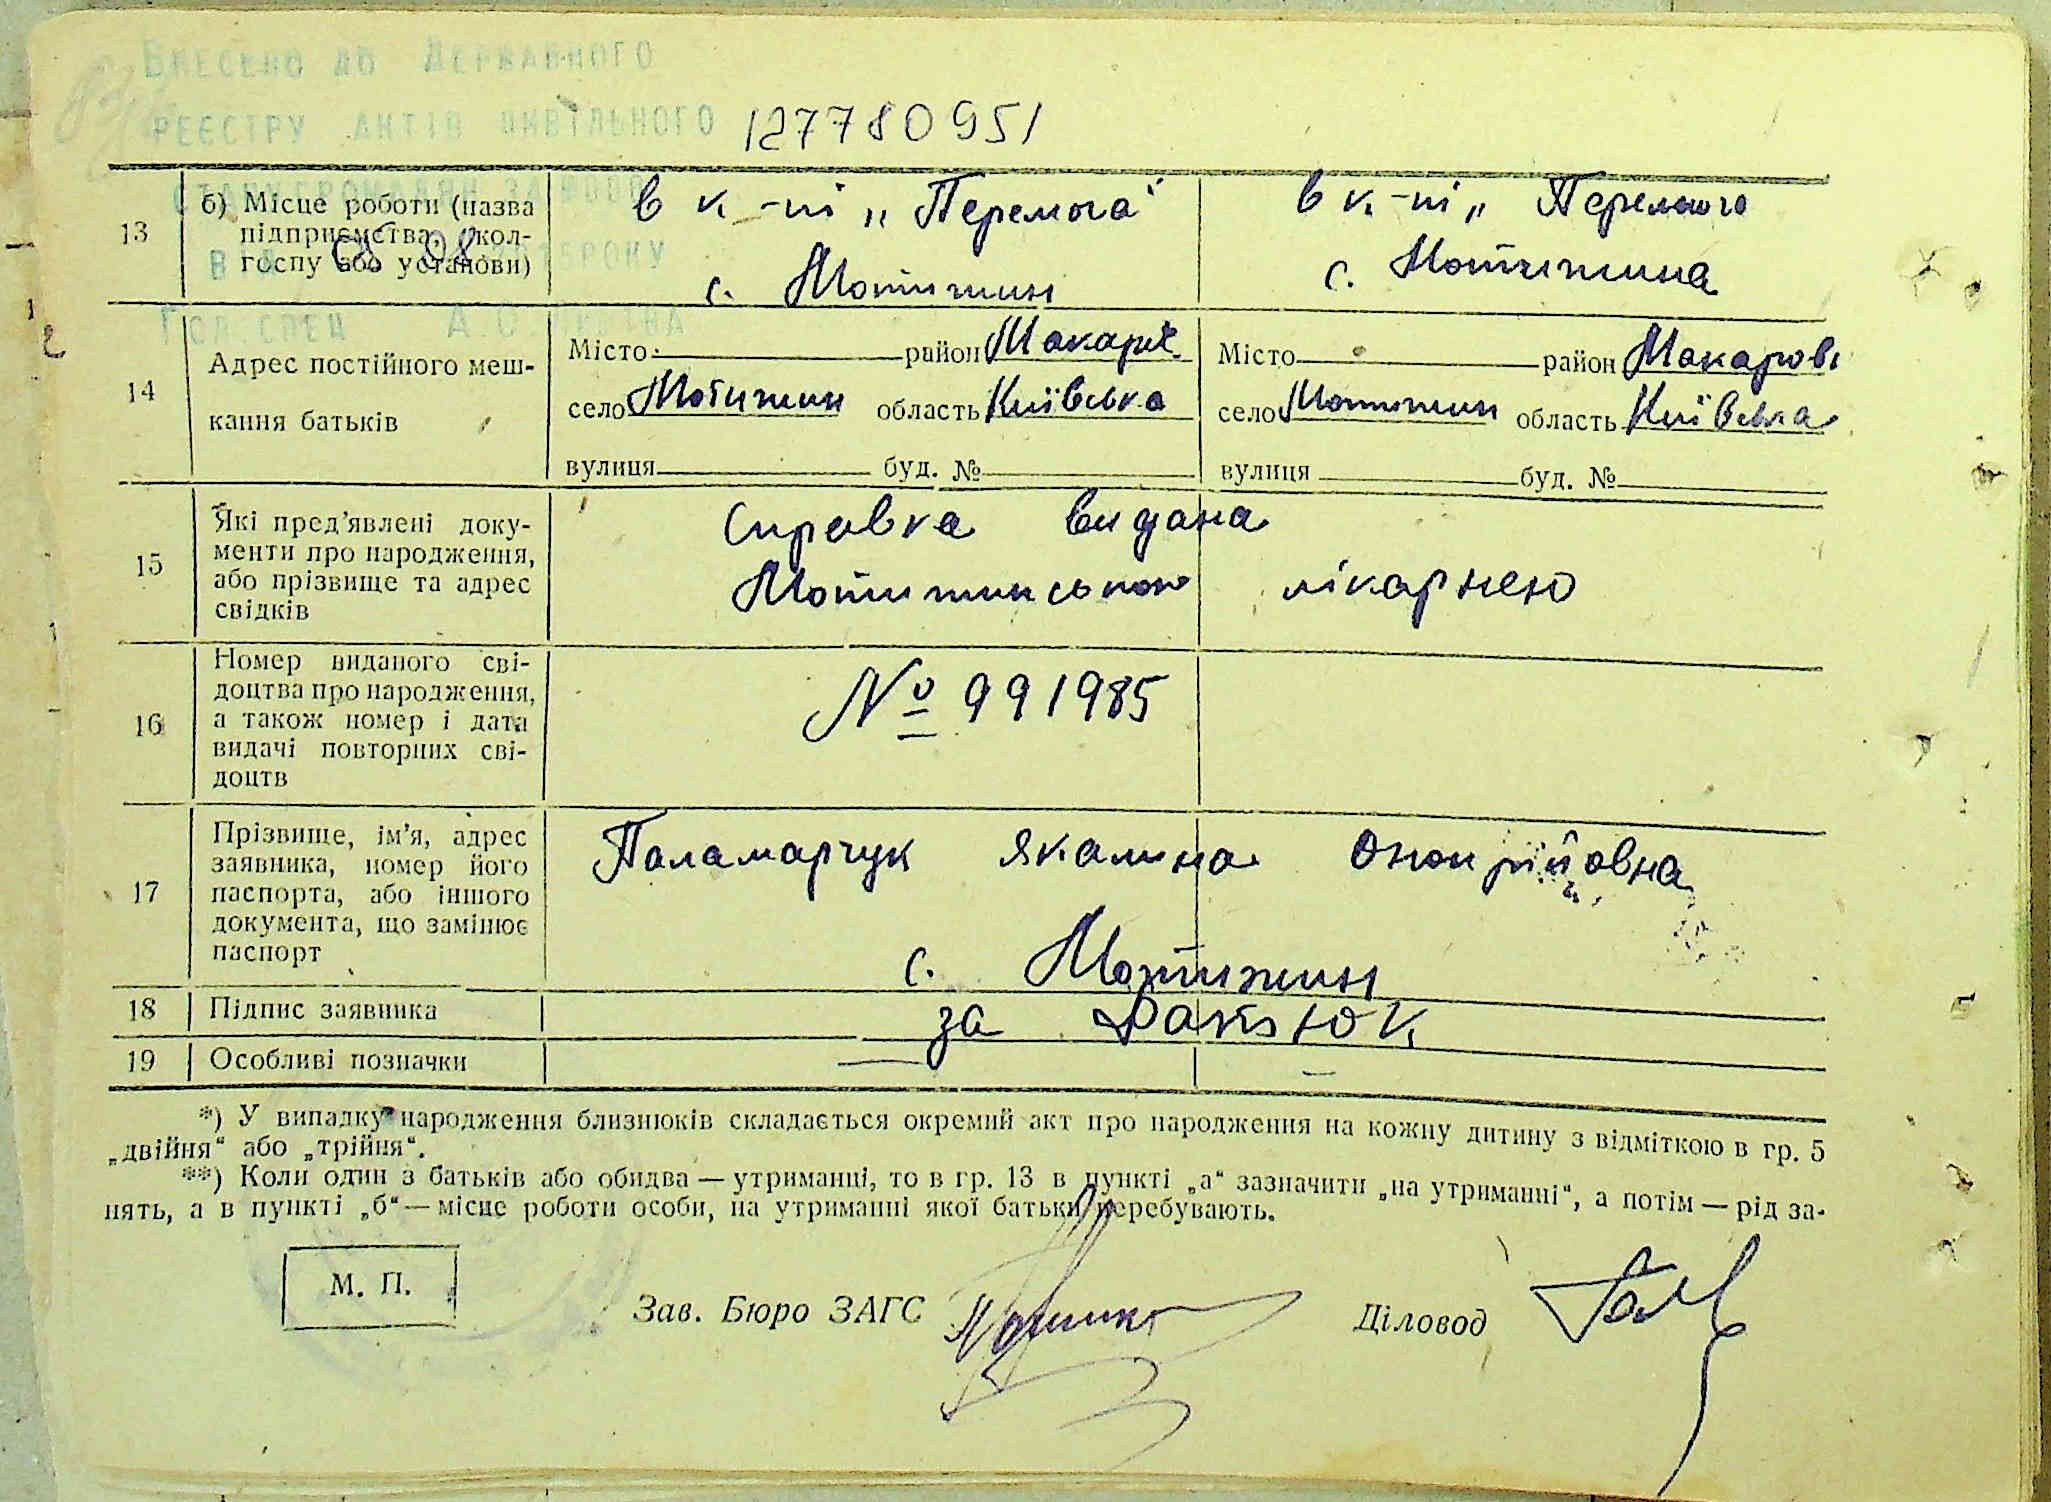 Внесено до Державного
реєстру актів цивільного
127780951
13
б) Місце роботи (назва підприємства, кол-
госпу або установи)
в к-пі „Перемога"
с. Мотижин
в к.-пі „Перемога
с. Мотижина
14
Адрес постійного меш-
кання батьків
Місто район Макарів.
село Мотижин область Київська
вулиця буд. №
Місто район Макарові
село Мотижин область Київська
вулиця буд. №
15
Які пред'явлені доку-
менти про народження,
або прізвище та адрес
свідків
Справка видана
Мотижинською лікарнею
16
Номер виданого сві-
доцтва про народження,
а також номер і дата
видачі повторних сві-
доцтв
№ 991985
17
Прізвище, ім'я, адрес
заявника, номер його
паспорта, або іншого
документа, що замінює
паспорт
Паламарчук Якалина Онопрійовна
с. Мотижин
18
Підпис заявника
за
19
Особливі позначки
— —
*) У випадку народження близнюків складається окремий акт про народження на кожну дитину з відміткою в гр. 5
„двійня" або „трійня".
**) Коли один з батьків або обидва — утриманці, то в гр. 13 в пункті „а" зазначити „на утриманні", а потім — рід за-
нять, а в пункті „б" — місце роботи особи, на утриманні якої батьки перебувають.
М. П.
Зав. Бюро ЗАГС
Діловод